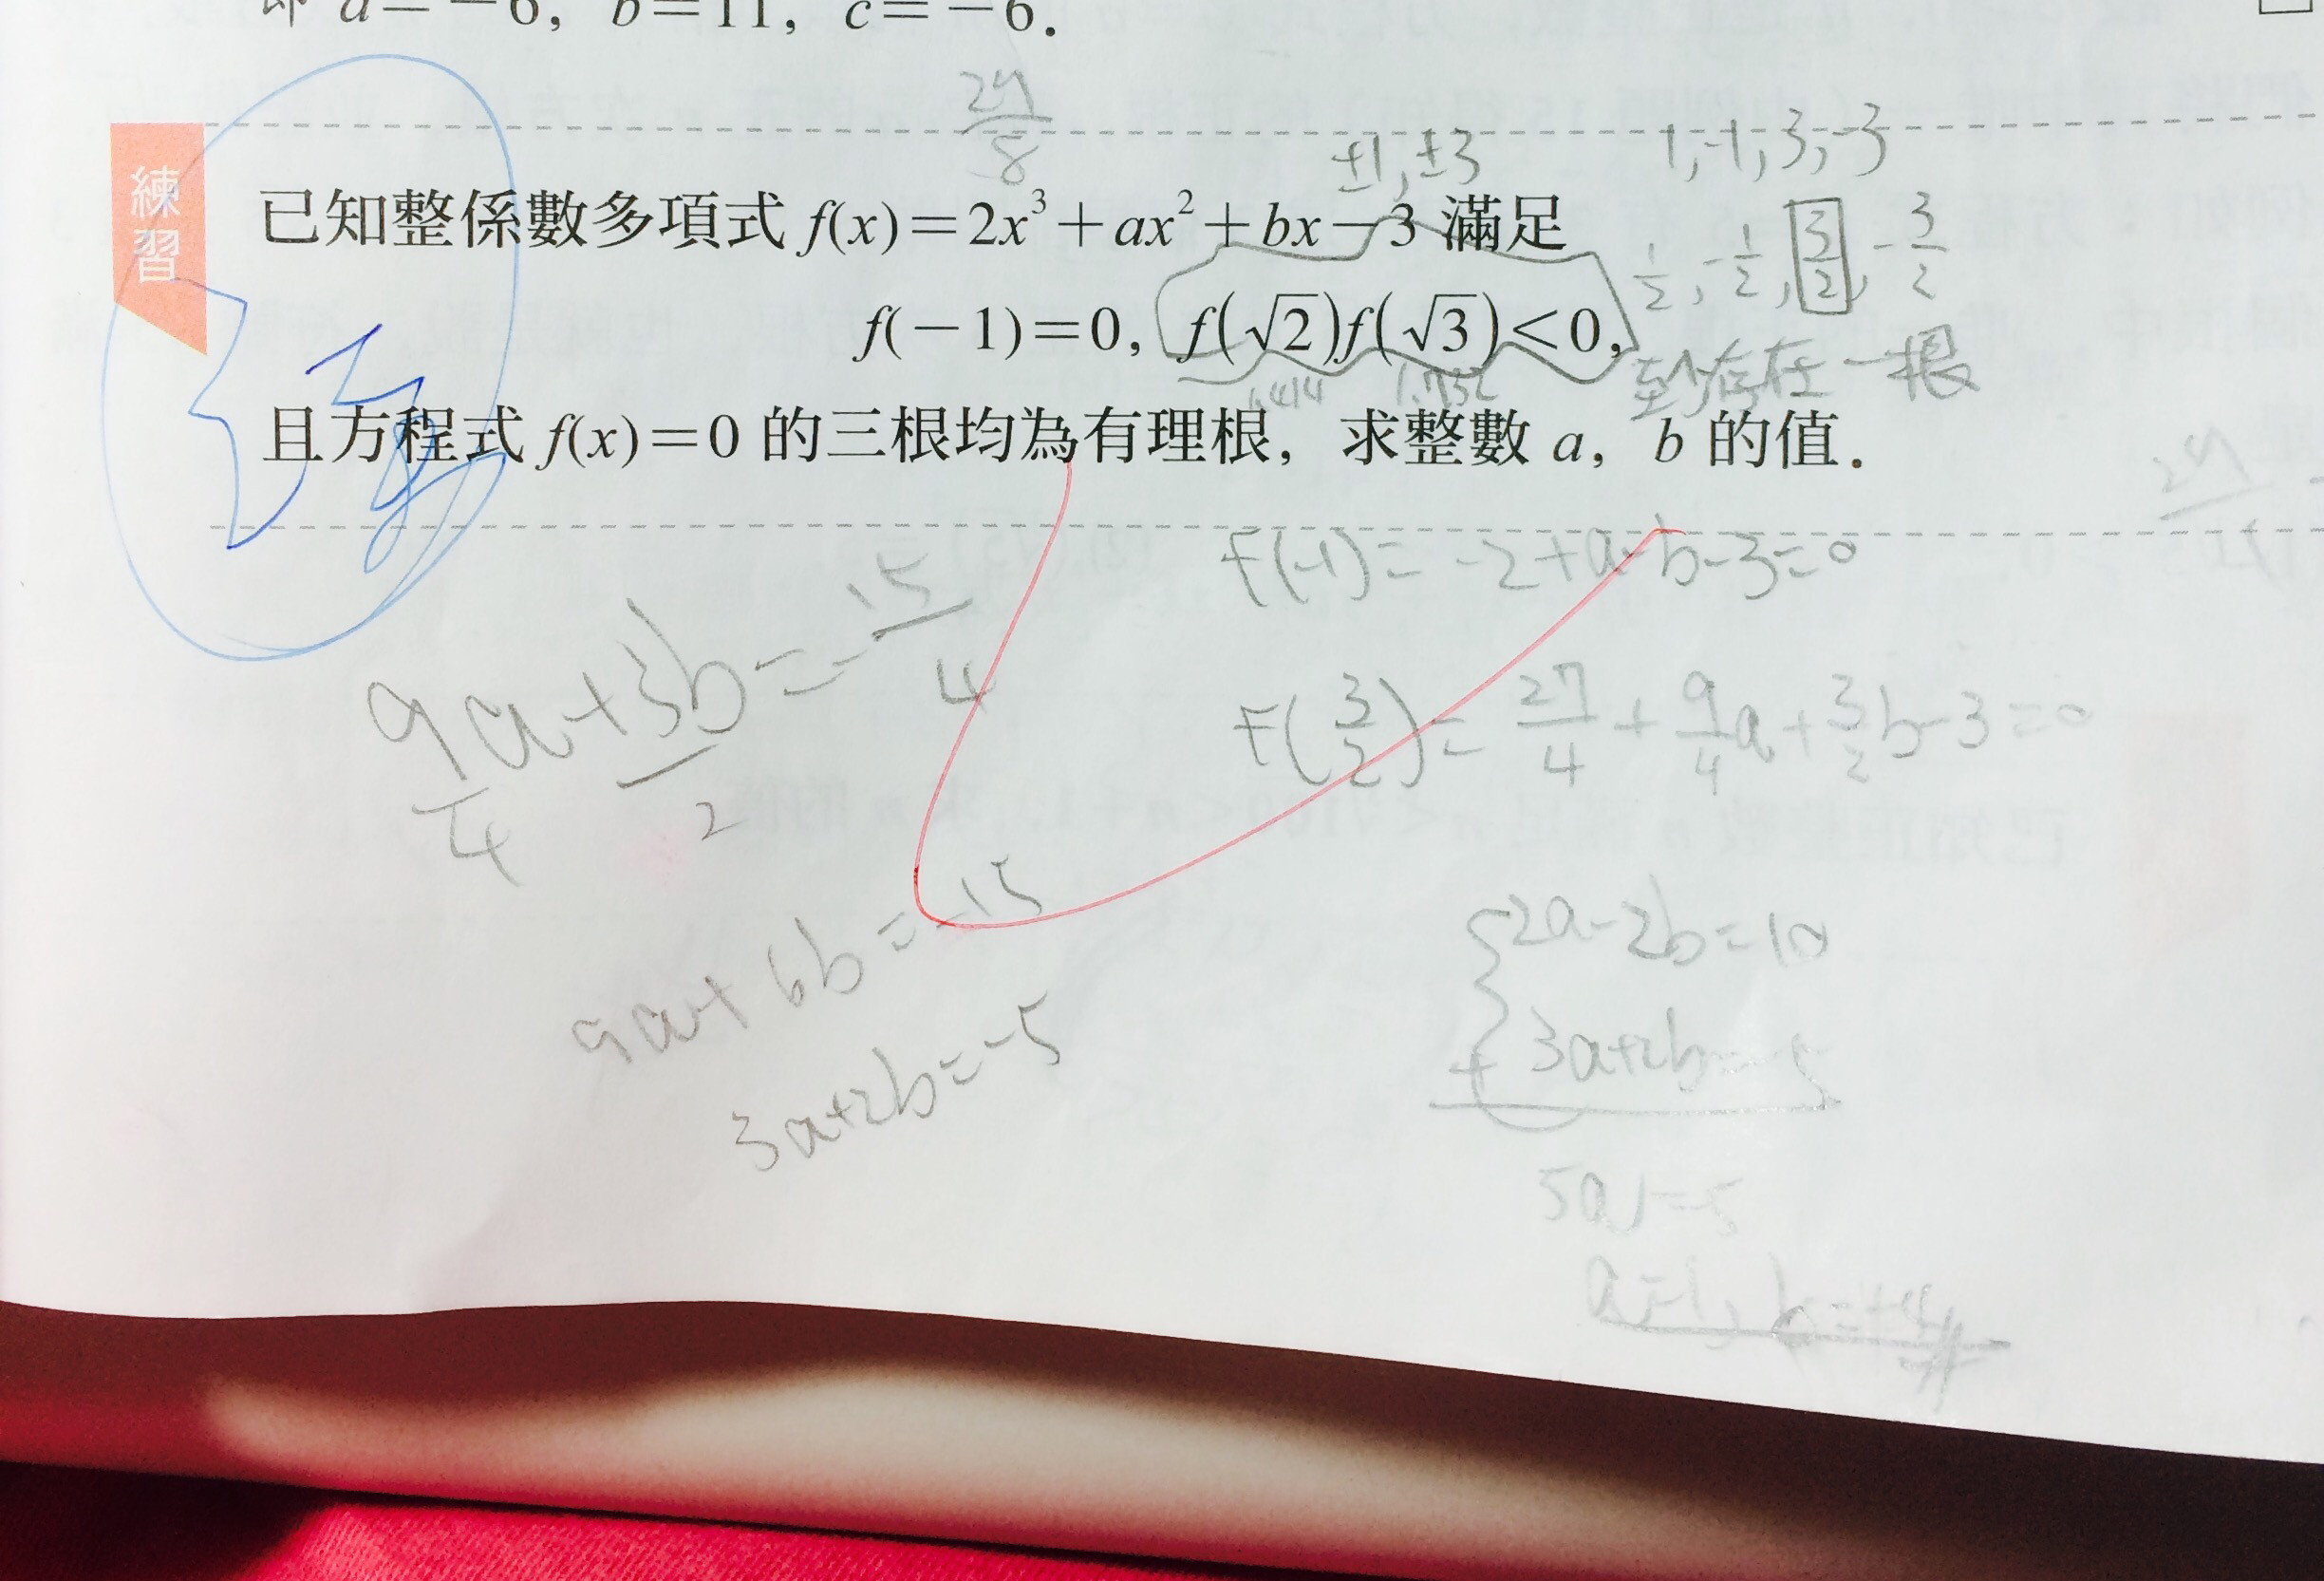 即 a=-6, b=11, c=-6.
27/8
±1, ±3
1, -1, 3, -3
練習
已知整係數多項式 f(x)=2x³+ax²+bx-3 滿足
1/2, -1/2, 3/2, -3/2
f(-1)=0, f(√2)f(√3)<0,
1.414 1.732
至少存在一根
且方程式 f(x)=0 的三根均為有理根, 求整數 a, b 的值.
F(-1)= -2+a-b-3=0
9/4 a+3b/2=-15/4
F(3/2)= 27/4 + 9/4 a + 3/2 b-3=0
9a+6b=-15
3a+2b=-5
2a-2b=10
+ 3a+2b=-5
5a=5